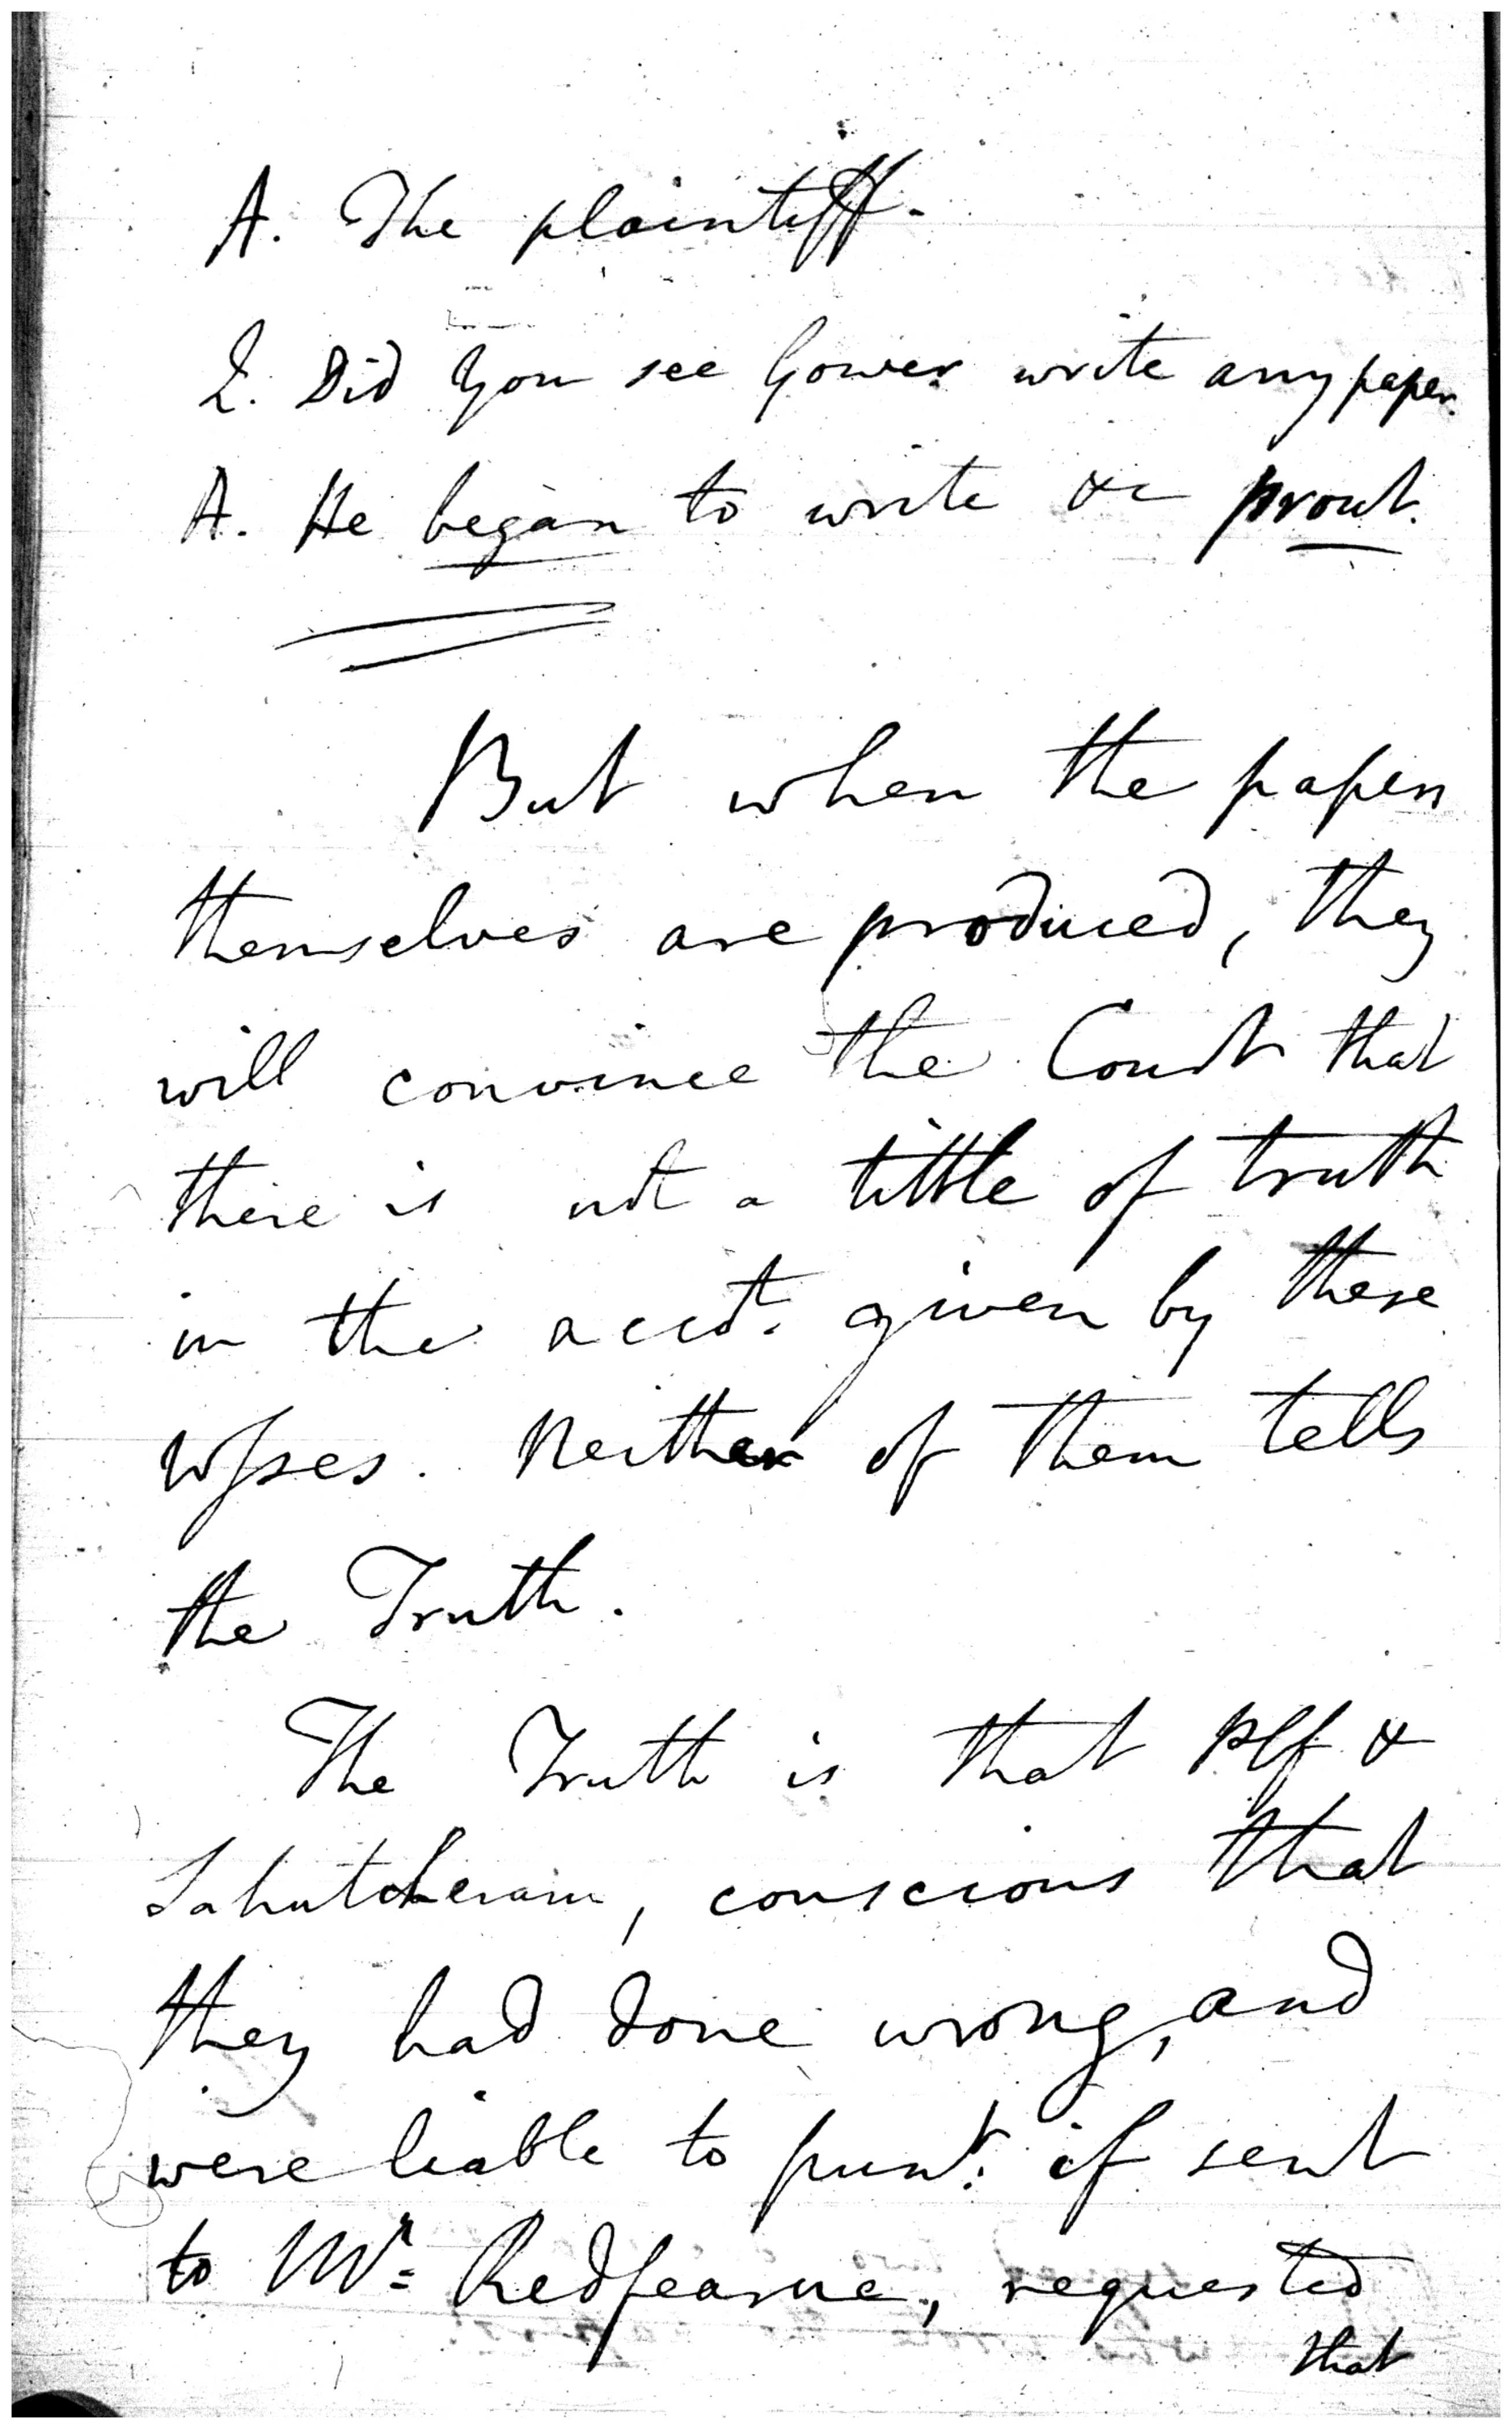 A. The plaintiff.
Q. Did you see Gower write any paper.
A. He began to write &c prout.
But when the papers
themselves are produced, they
will convince the Court that
there is not a tittle of truth
in the acct. given by these
Wſses. Neither of them tells
the Truth.
The Truth is that Plf &
conscious that
they had done wrong, and
were liable to punt. if sent
to Mr. Redfearne, requested
that